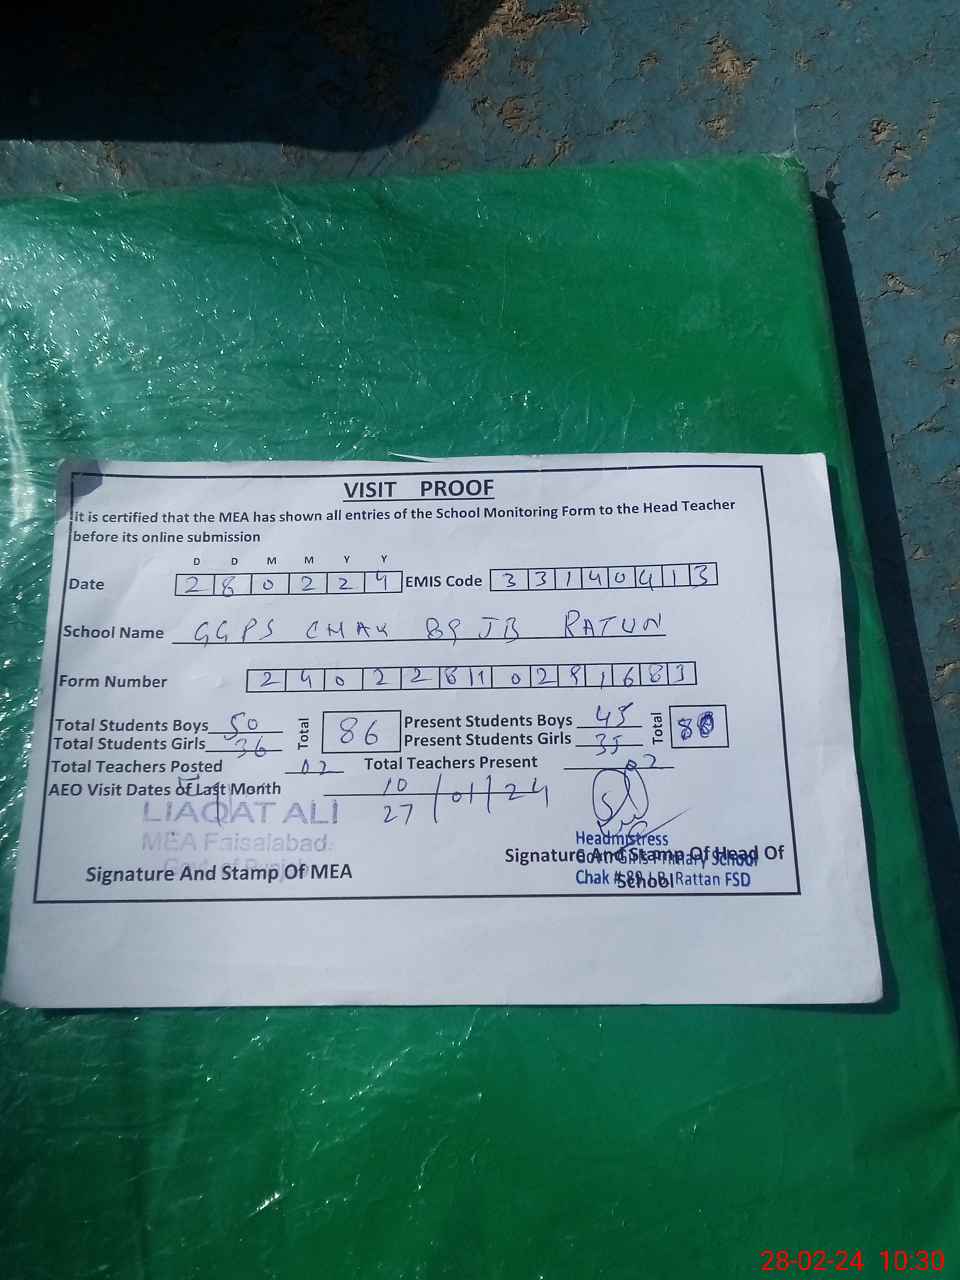 VISIT PROOF
it is certified that the MEA has shown all entries of the School Monitoring Form to the Head Teacher
before its online submission
D D M M Y Y
Date 2 8 0 2 2 4 EMIS Code 3 3 1 4 0 4 1 3
School Name GGPS CHAK 89 JB RATUN
Form Number
Total Students Boys 50 Total 86 Present Students Boys 45 Total 80
Total Students Girls 36 Present Students Girls 35
Total Teachers Posted 02 Total Teachers Present 02
AEO Visit Dates of Last Month 10
27 /01/24
LIAQAT ALI
MEA Faisalabad
Govt. of Punjab
Signature And Stamp Of MEA
Headmistress
Signature And Stamp Of Head Of
Govt. Girls Primary School
School
Chak # 89 J.B. Rattan FSD
28-02-24 10:30